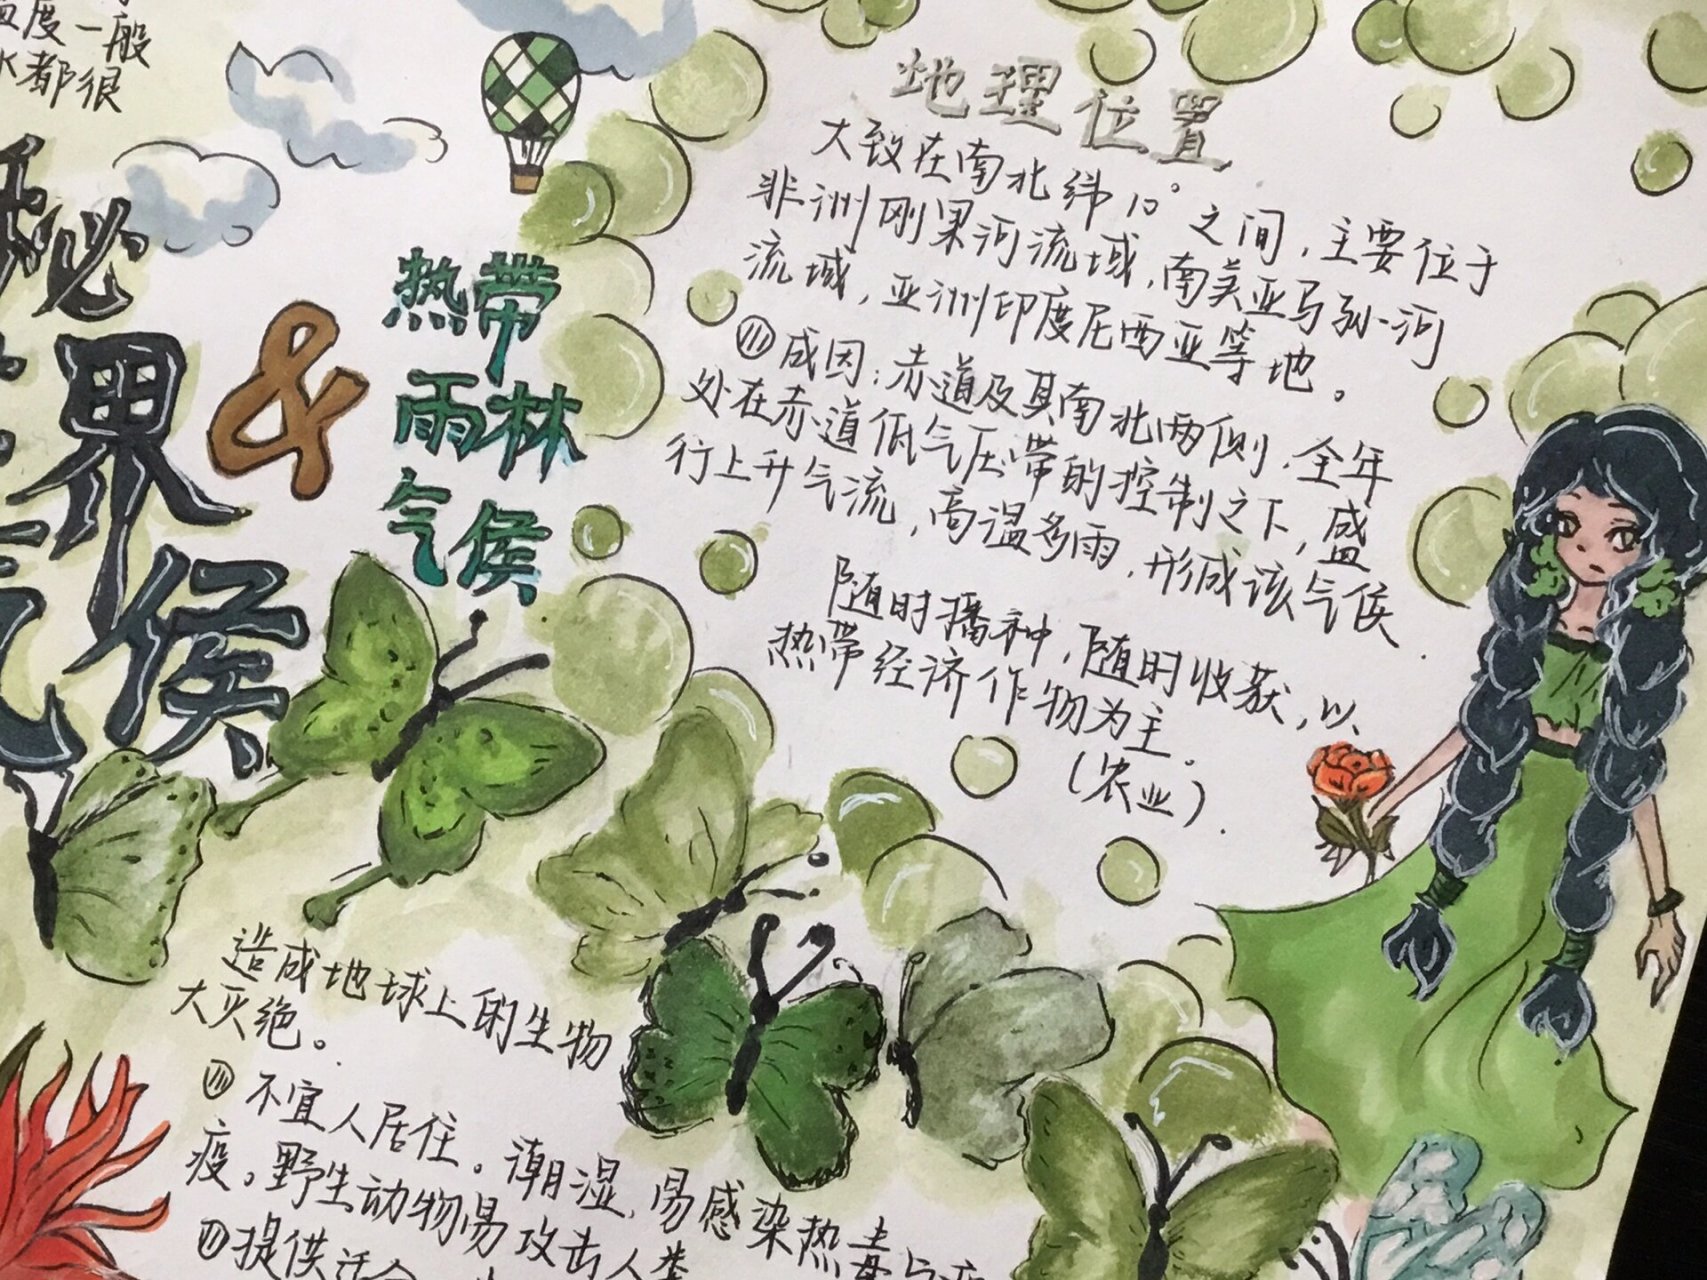 度一般
都很
秘
界
气候
&
热带
雨林
气候
地理位置
大致在南北纬10°之间，主要位于
非洲刚果河流域，南美亚马孙河
流域，亚洲印度尼西亚等地。
成因：赤道及其南北两侧，全年
处在赤道低气压带的控制之下，盛
行上升气流，高温多雨，形成该气候.
随时播种，随时收获，以
热带经济作物为主.
（农业）.
造成地球上的生物
大灭绝。
不宜人居住。潮湿，易感染热毒与
疫。野生动物易攻击人类
提供适合